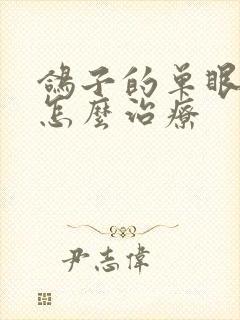 鴿子的单眼
怎麼治療
尹志偉